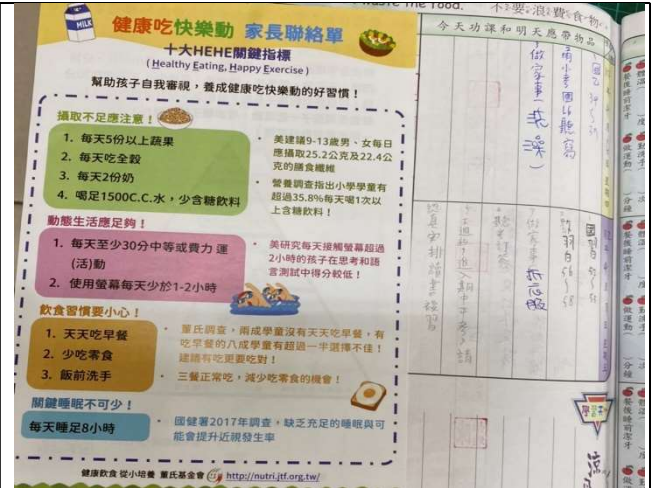 MILK
健康吃快樂動 家長聯絡單
十大HEHE關鍵指標
( Healthy Eating, Happy Exercise )
幫助孩子自我審視，養成健康吃快樂動的好習慣！
攝取不足應注意！
1. 每天5份以上蔬果
2. 每天吃全穀
3. 每天2份奶
4. 喝足1500C.C.水，少含糖飲料
• 美建議9-13歲男、女每日
應攝取25.2公克及22.4公
克的膳食纖維
• 營養調查指出小學學童有
超過35.8%每天喝1次以
上含糖飲料！
動態生活應足夠！
1. 每天至少30分中等或費力 運
(活)動
2. 使用螢幕每天少於1-2小時
• 美研究每天接觸螢幕超過
2小時的孩子在思考和語
言測試中得分較低！
飲食習慣要小心！
1. 天天吃早餐
2. 少吃零食
3. 飯前洗手
• 董氏調查，兩成學童沒有天天吃早餐，有
吃早餐的八成學童有超過一半選擇不佳！
建議有吃更要吃對！
• 三餐正常吃，減少吃零食的機會！
關鍵睡眠不可少！
每天睡足8小時
• 國健署2017年調查，缺乏充足的睡眠與可
能會提升近視發生率
健康飲食 從小培養 董氏基金會 http://nutri.jtf.org.tw/
waste the food.
不要浪費食物
今天功課和明天應帶物品
做家事－洗澡
餐後睡前潔牙
做運動
分鐘